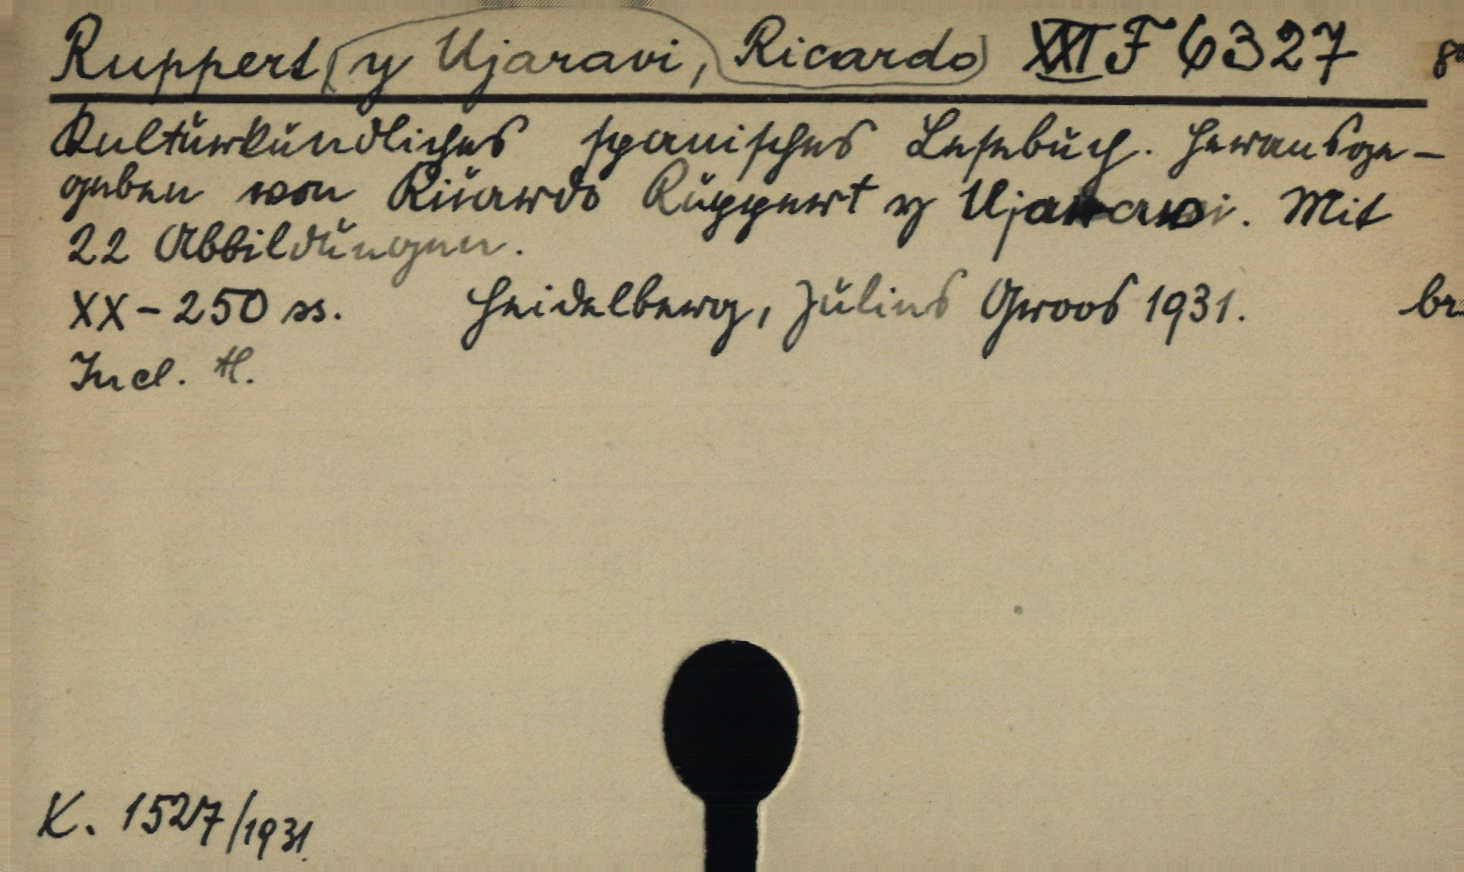 Ruppert (y Ujaravi, Ricardo) XXI F 6327 8°
Kulturkundliches spanisches Lesebuch. Herausge-
geben von Ricardo Ruppert y Ujaravi. Mit
22 Abbildungen.
XX-250 ss. Heidelberg, Julius Groos 1931. br
Incl. H.
K. 1527/1931